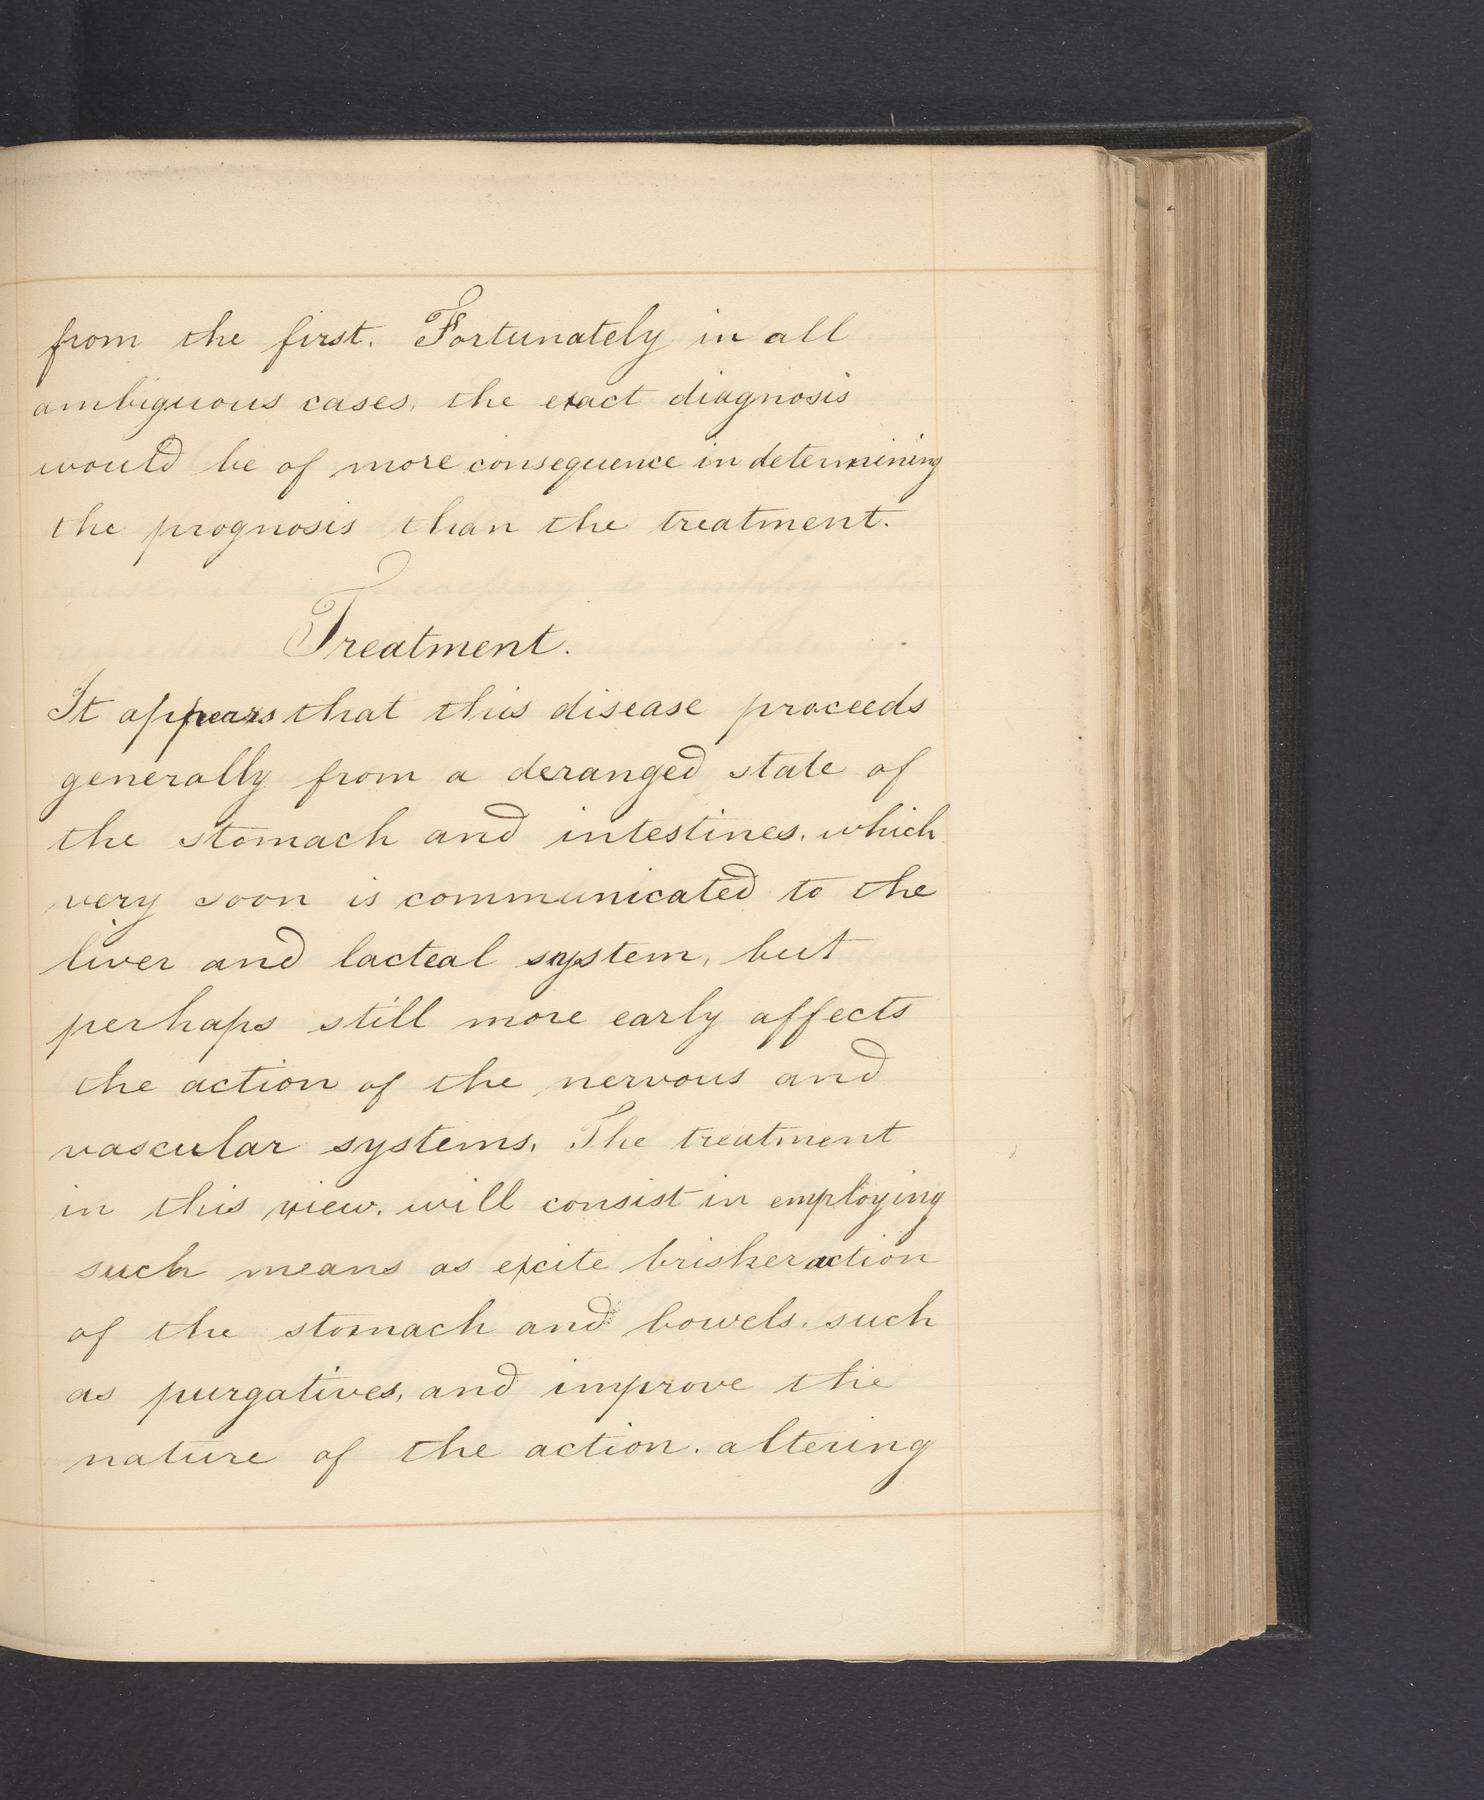 from the first. Fortunately in all
ambiguous cases, the exact diagnosis
would be of more consequence in determining
the prognosis than the treatment.
Treatment.
It appears that this disease proceeds
generally from a deranged state of
the stomach and intestines, which
very soon is communicated to the
liver and lacteal system, but
perhaps still more early affects
the action of the nervous and
vascular systems. The treatment
in this view, will consist in employing
such means as excite brisker action
of the stomach and bowels, such
as purgatives, and improve the
nature of the action, altering